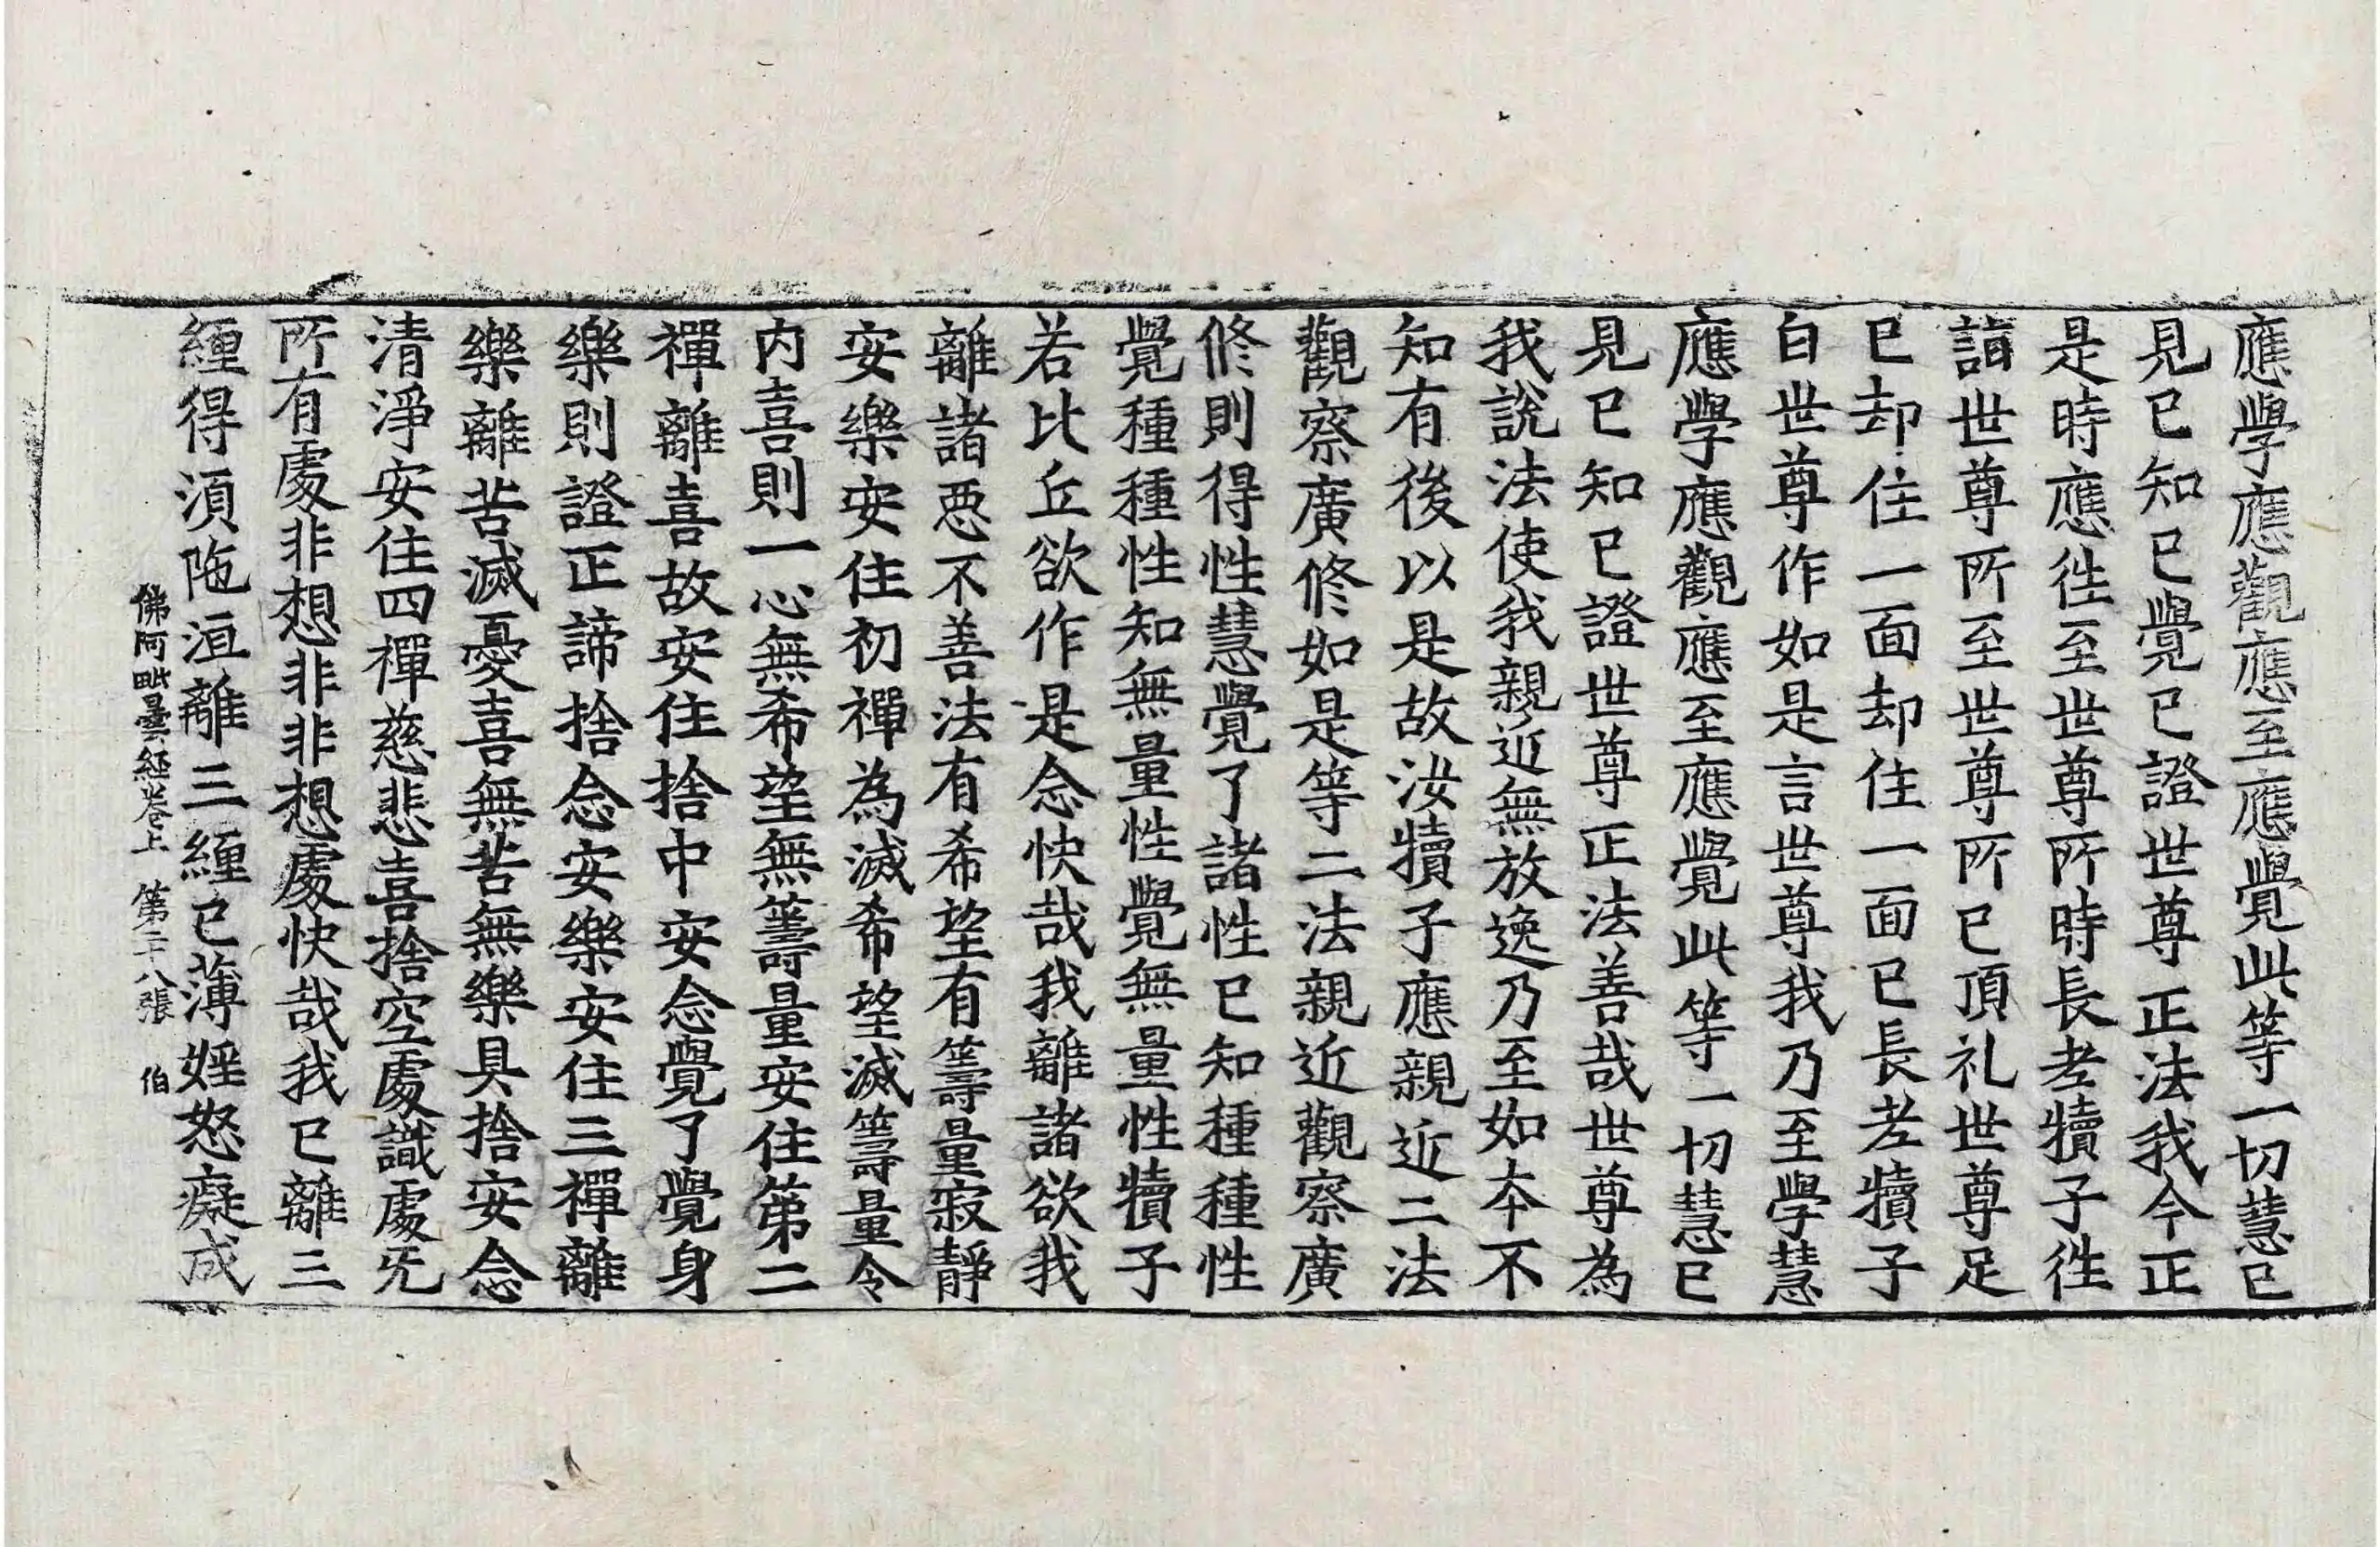 應學應觀應至應覺此等一切慧已
見已知已覺已證世尊正法我今正
是時應徃至世尊所時長老犢子徃
詣世尊所至世尊所已頂礼世尊足
已却住一面却住一面已長老犢子
白世尊作如是言世尊我乃至學慧
應學應觀應至應覺此等一切慧已
見已知已證世尊正法善哉世尊為
我說法使我親近無放逸乃至如本不
知有後以是故汝犢子應親近二法
觀察廣修如是等二法親近觀察廣
修則得性慧覺了諸性已知種種性
覺種種性知無量性覺無量性犢子
若比丘欲作是念快哉我離諸欲我
離諸惡不善法有希望有籌量寂靜
安樂安住初禪為滅希望滅籌量令
内喜則一心無希望無籌量安住第二
禪離喜故安住捨中安念覺了覺身
樂則證正諦捨念安樂安住三禪離
樂離苦滅憂喜無苦無樂具捨安念
清淨安住四禪慈悲喜捨空處識處旡
所有處非想非非想處快哉我已離三
緾得湏陁洹離三緾已薄婬怒癡成
佛阿毗曇經卷上 第二十八張 伯